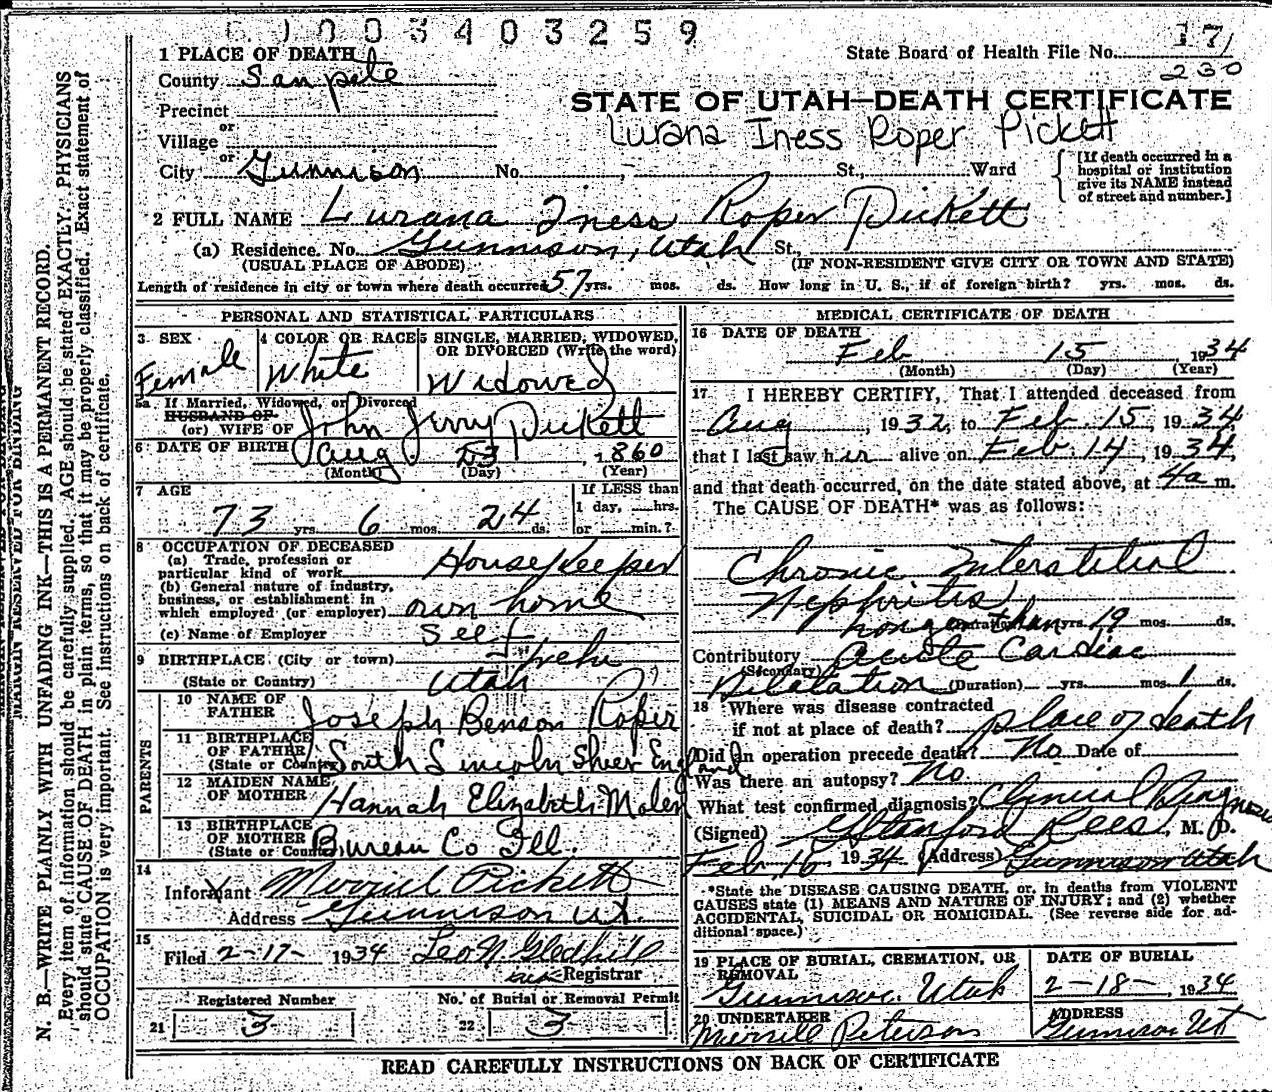 0 0 3 4 0 3 2 5 9
State Board of Health File No. 17
230
1 PLACE OF DEATH
County Sanpete
STATE OF UTAH—DEATH CERTIFICATE
Precinct
Lurana Iness Roper Pickett
or
Village
or
City Gunnison No. , St., Ward
[If death occurred in a hospital or institution give its NAME instead of street and number.]
2 FULL NAME Lurana Iness Roper Pickett
(a) Residence. No. Gunnison, Utah St.,
(USUAL PLACE OF ABODE) (IF NON-RESIDENT GIVE CITY OR TOWN AND STATE)
Length of residence in city or town where death occurred 57 yrs. mos. ds. How long in U. S., if of foreign birth? yrs. mos. ds.
PERSONAL AND STATISTICAL PARTICULARS
3 SEX Female
4 COLOR OR RACE White
5 SINGLE, MARRIED, WIDOWED, OR DIVORCED (Write the word)
Widowed
5a If Married, Widowed, or Divorced
HUSBAND OF
(or) WIFE OF John Jerry Pickett
6 DATE OF BIRTH Aug 23, 1860
(Month) (Day) (Year)
7 AGE
73 yrs. 6 mos. 24 ds.
If LESS than
1 day, hrs.
or min.?
8 OCCUPATION OF DECEASED
(a) Trade, profession or
particular kind of work Housekeeper
(b) General nature of industry,
business, or establishment in
which employed (or employer) own home
(c) Name of Employer Self
9 BIRTHPLACE (City or town) Lehi
(State or Country) Utah
PARENTS
10 NAME OF
FATHER Joseph Benson Roper
11 BIRTHPLACE
OF FATHER
(State or Country) South Lincoln Sheer England
12 MAIDEN NAME
OF MOTHER Hannah Elizabeth Molen
13 BIRTHPLACE
OF MOTHER
(State or Country) Bureau Co Ill.
14
Informant Merriel Pickett
Address Gunnison Ut.
15
Filed 2-17- 1934 Leo N. Gledhill
Registrar
Registered Number
21 3
No. of Burial or Removal Permit
22 3
MEDICAL CERTIFICATE OF DEATH
16 DATE OF DEATH
Feb 15 1934
(Month) (Day) (Year)
17 I HEREBY CERTIFY, That I attended deceased from
Aug , 1932, to Feb. 15, 1934,
that I last saw her alive on Feb. 14, 1934,
and that death occurred, on the date stated above, at 4a m.
The CAUSE OF DEATH* was as follows:
Chronic Interstitial
Nephritis
longer than (Duration) yrs. 19 mos. ds.
Contributory Acute Cardiac
(Secondary)
Dilelation (Duration) yrs. mos. 1 ds.
18 Where was disease contracted
if not at place of death? place of death
Did an operation precede death? No Date of
Was there an autopsy? No.
What test confirmed diagnosis? Clinical Diagnosis
(Signed) G Stanford Rees, M. D.
Feb 16 1934 (Address) Gunnison Utah
*State the DISEASE CAUSING DEATH, or, in deaths from VIOLENT
CAUSES state (1) MEANS AND NATURE OF INJURY; and (2) whether
ACCIDENTAL, SUICIDAL OR HOMICIDAL. (See reverse side for ad-
ditional space.)
19 PLACE OF BURIAL, CREMATION, OR
REMOVAL
Gunnison. Utah
DATE OF BURIAL
2-18-, 1934
20 UNDERTAKER
Merrill Peterson
ADDRESS
Gunnison Ut
READ CAREFULLY INSTRUCTIONS ON BACK OF CERTIFICATE
MARGIN RESERVED FOR BINDING
N. B.—WRITE PLAINLY WITH UNFADING INK—THIS IS A PERMANENT RECORD.
Every item of information should be carefully supplied. AGE should be stated EXACTLY. PHYSICIANS
should state CAUSE OF DEATH in plain terms, so that it may be properly classified. Exact statement of
OCCUPATION is very important. See instructions on back of certificate.